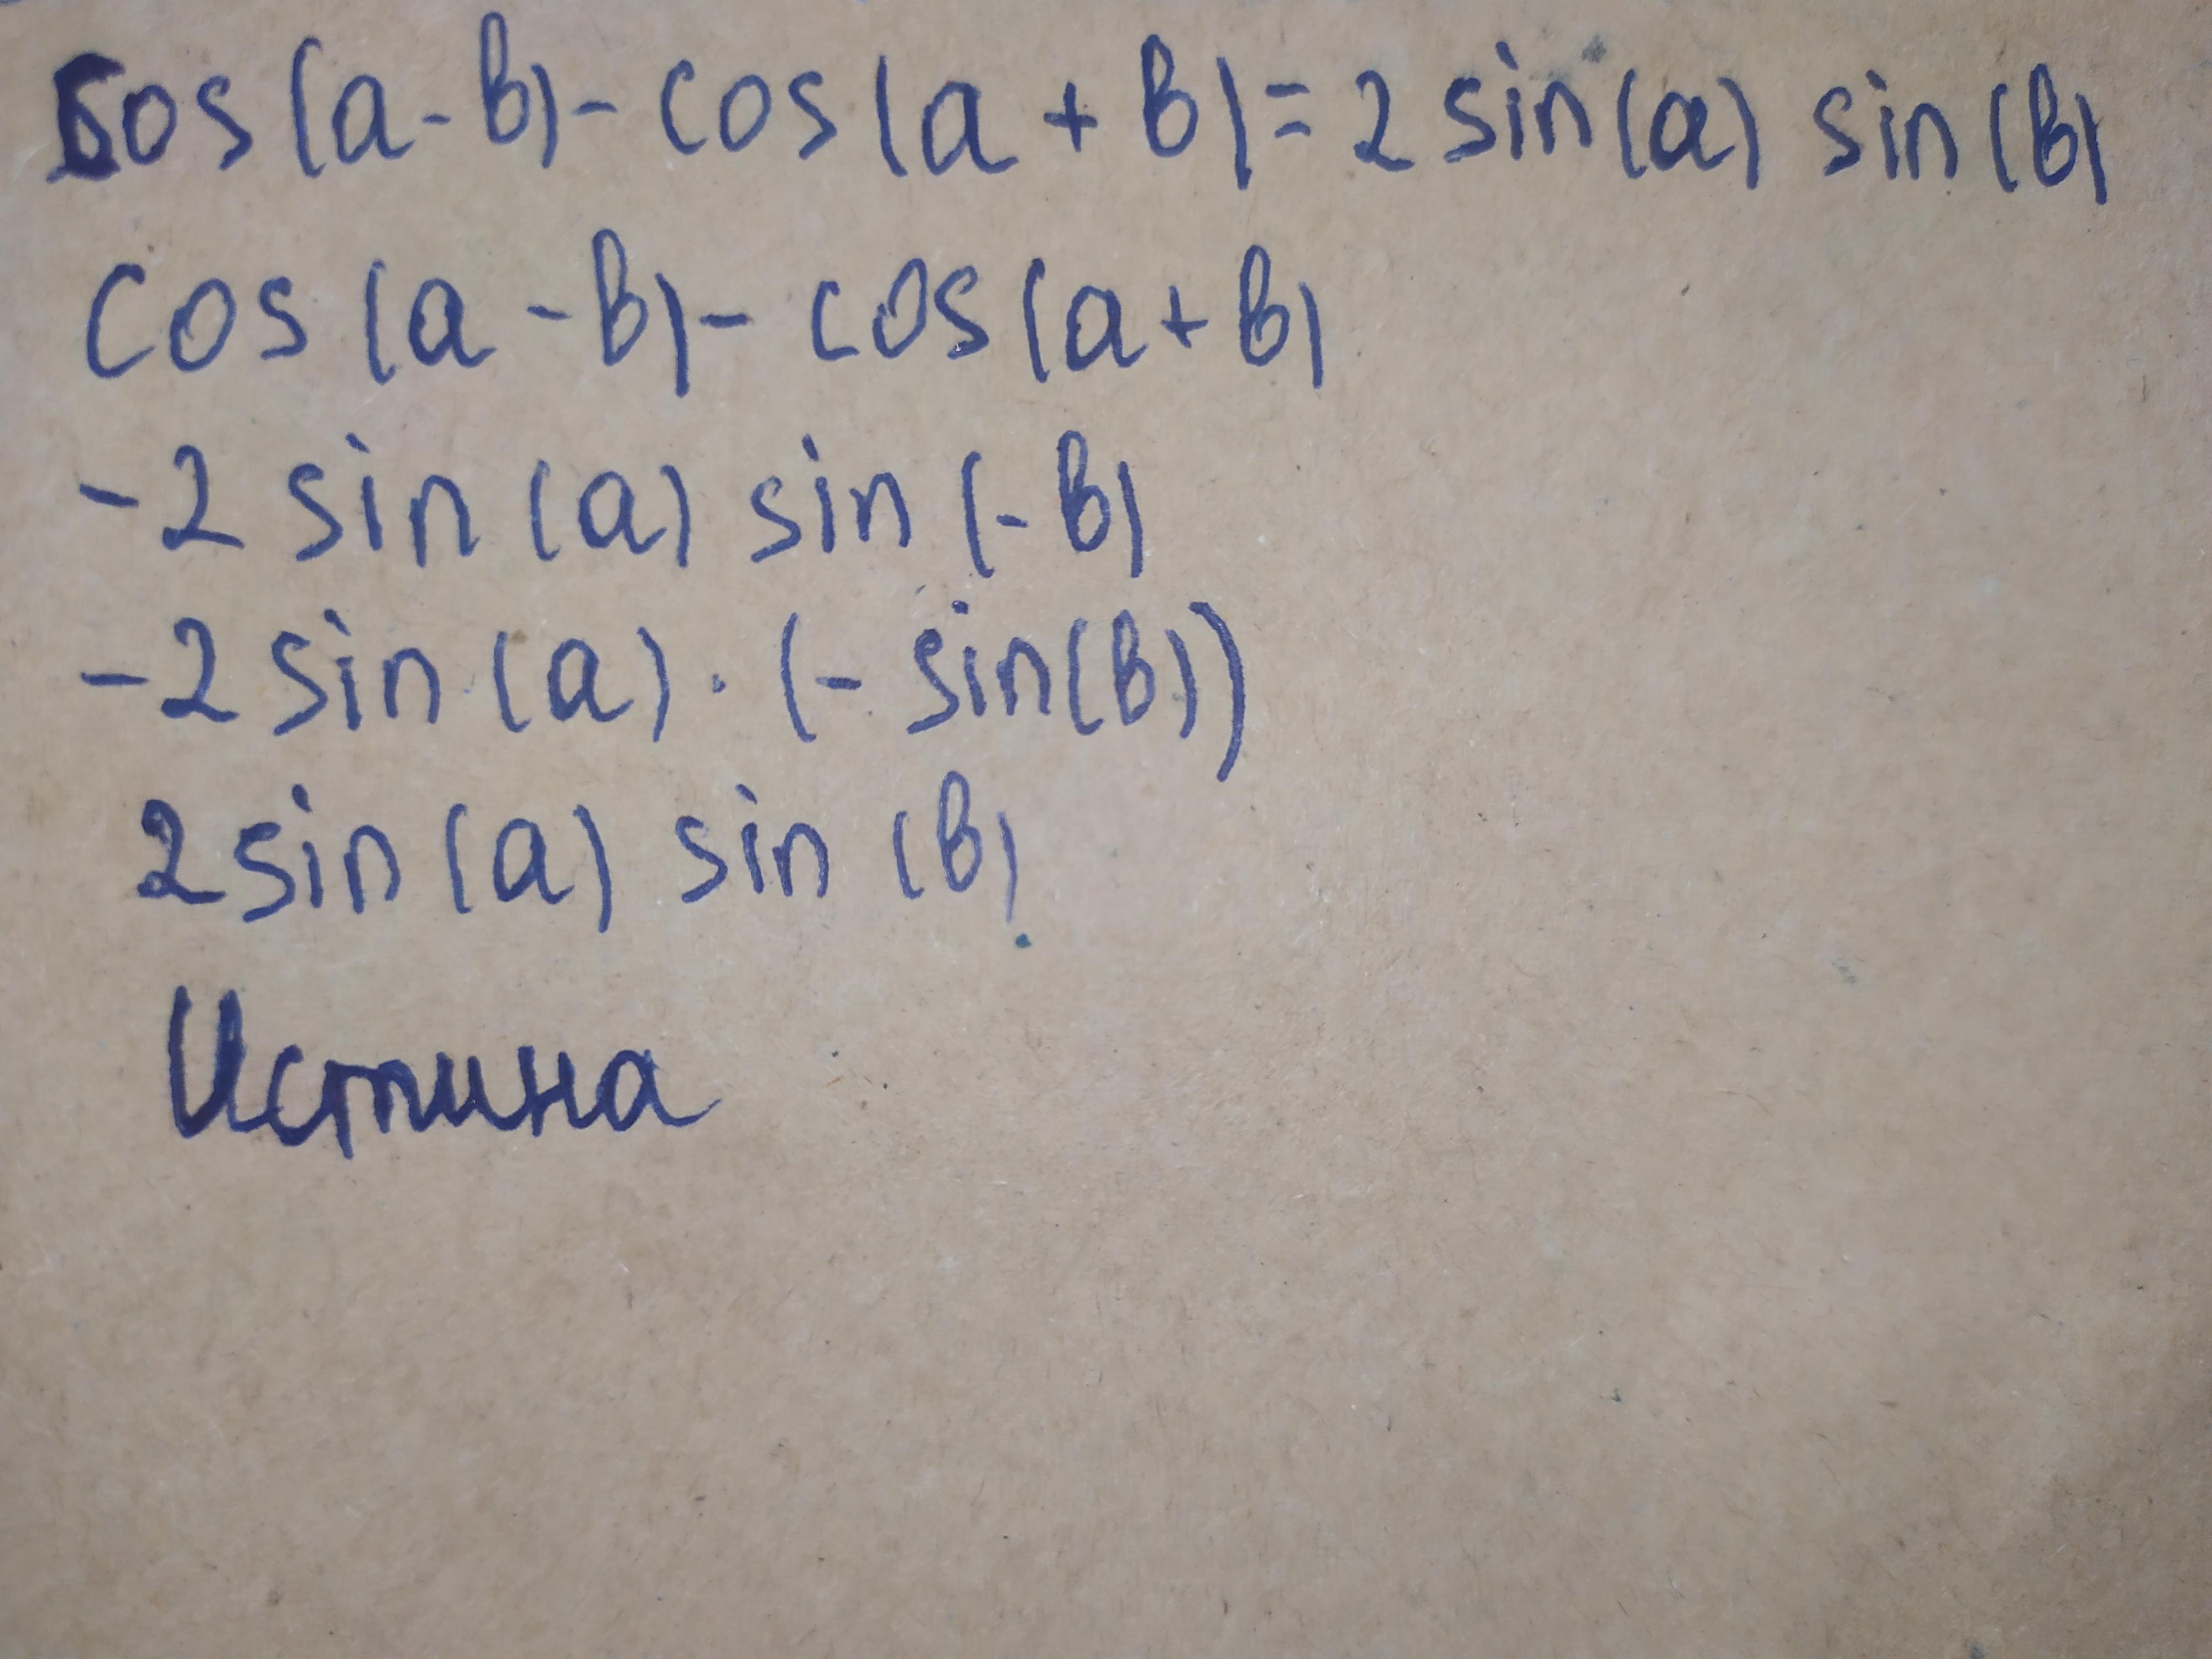 cos(a-b)-cos(a+b)=2sin(a) sin(b)
cos(a-b)-cos(a+b)
-2 sin(a) sin(-b)
-2 sin(a)·(-sin(b))
2 sin(a) sin(b)
Истина